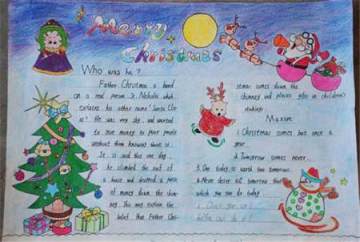 Merry
Christmas
Who was he?
Father Christmas is based
on a real person St. Nicholas which
explains his other name 'Santa Cla
He was very shy and wanted
to give money to poor people
without them knowing about it.
It is said that one day,
he climbed the roof of
a house and dropped a purse
of money down the chim
ney. This may explain the
belief that Father Chri-
stmas comes down the
chimney and places gifts in children's
stockings
Maxim:
1. Christmas comes but once a
year.
2. Tomorrow comes never.
3. One today is worth two tomorrows.
4. Never defer till tomorrow that
which you can do today